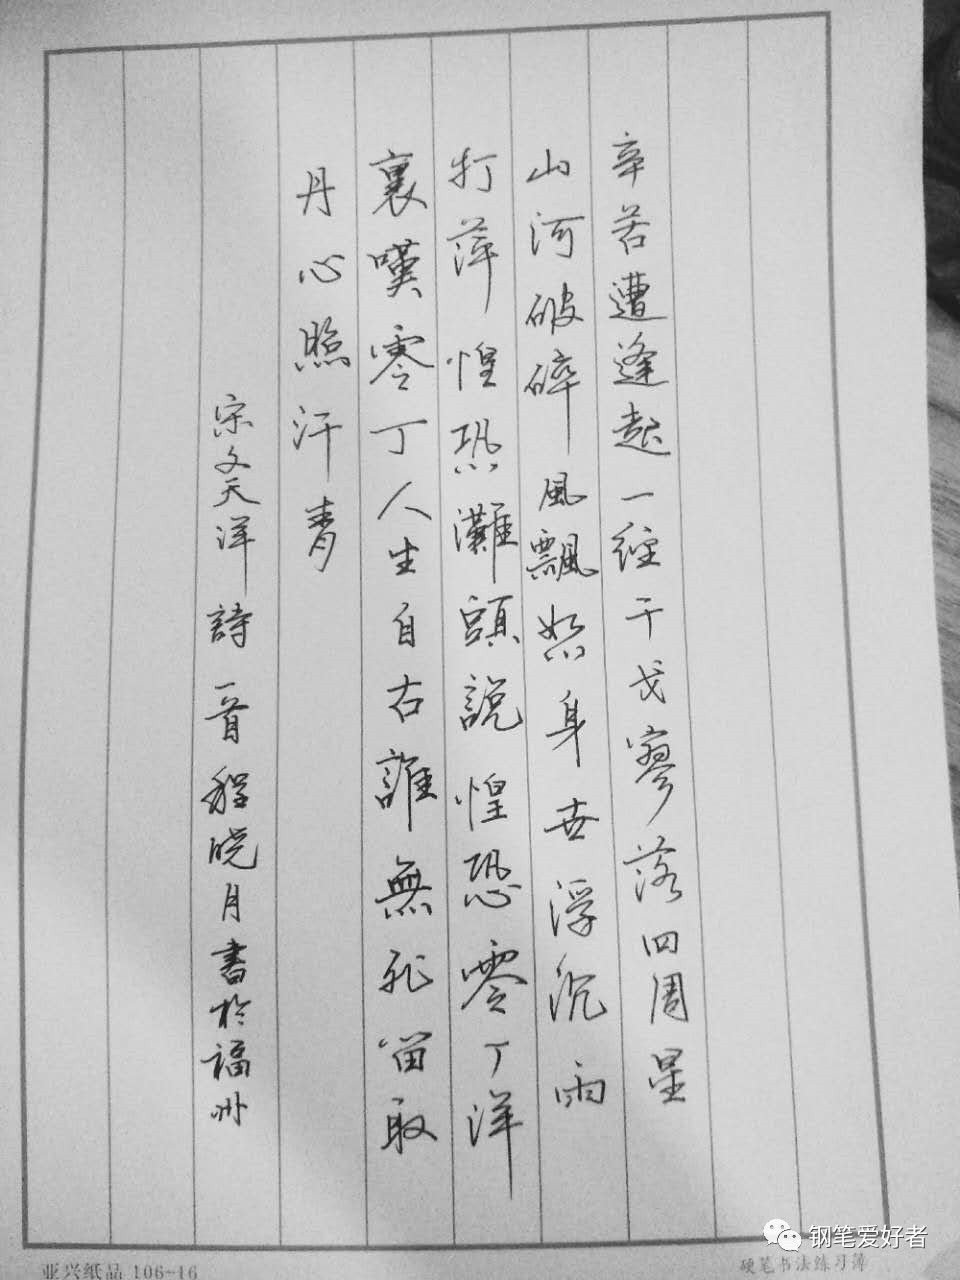 辛苦遭逢起一經干戈寥落四周星
山河破碎風飄絮身世浮沉雨
打萍惶恐灘頭說惶恐零丁洋
裏嘆零丁人生自古誰無死留取
丹心照汗青
宋文天洋詩一首程曉月書於福州
亚兴纸品 106-16
硬笔书法练习簿
钢笔爱好者